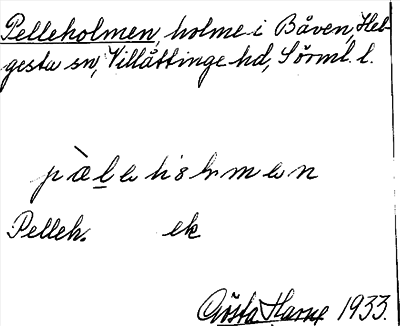 Pelleholmen, holme i Båven, Hel-
gesta sn, Villåttinge hd, Sörml. l.
pæ̀lehɔlmen
Pelleh. ek
Gösta 1933.